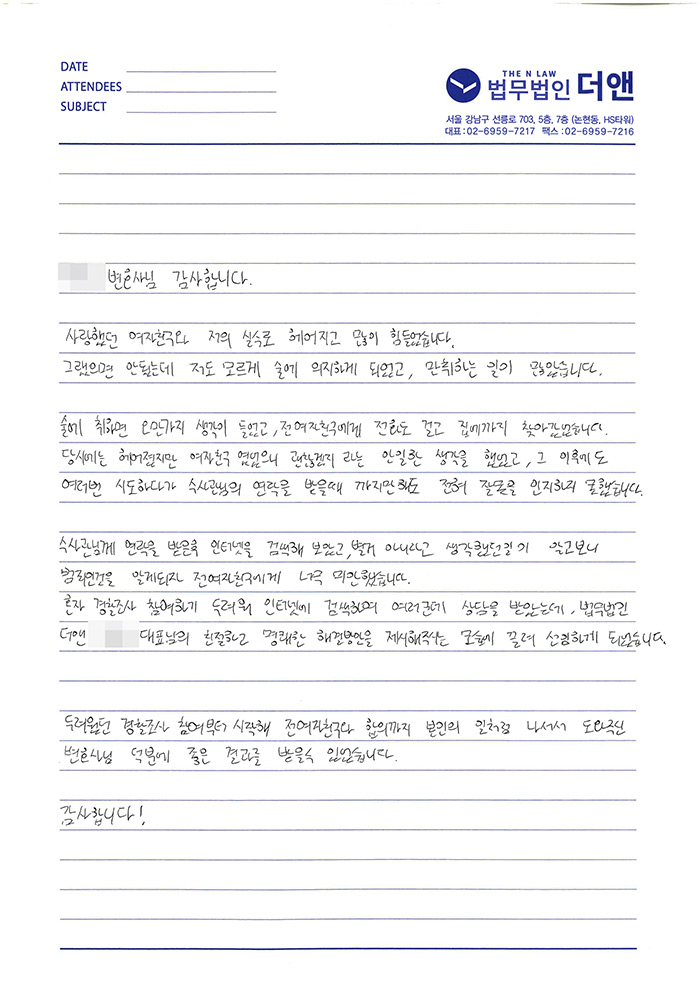 DATE
ATTENDEES
SUBJECT
THE N LAW
법무법인 더앤
서울 강남구 선릉로 703, 5층, 7층 (논현동, HS타워)
대표 : 02-6959-7217 팩스 : 02-6959-7216
변호사님 감사합니다.
사랑했던 여자친구와 저의 실수로 헤어지고 많이 힘들었습니다.
그랬으면 안됬는데 저도 모르게 술에 의지하게 되었고, 만취하는 일이 많았습니다.
술에 취하면 오만가지 생각이 들었고, 전여자친구에게 전화도 걸고 집에까지 찾아갔었습니다.
당시에는 헤어졌지만 여자친구 였었으니 괜찮겠지 라는 안일한 생각을 했었고, 그 이후에도
여러번 시도하다가 수사관님의 연락을 받을때 까지만해도 전혀 잘못을 인지하지 못했습니다.
수사관님께 연락을 받은후 인터넷을 검색해 보았고, 별거 아니라고 생각했던일이 알고보니
범죄인것을 알게되자 전여자친구에게 너무 미안했습니다.
혼자 경찰조사 참여하기 두려워 인터넷에 검색하여 여러군데 상담을 받았는데, 법무법인
더앤 대표님의 친절하고 명쾌한 해결방안을 제시해주시는 모습에 끌려 선임하게 되었습니다.
두려웠던 경찰조사 참여부터 시작해 전여자친구와 합의까지 본인의 일처럼 나서서 도와주신
변호사님 덕분에 좋은 결과를 받을수 있었습니다.
감사합니다!